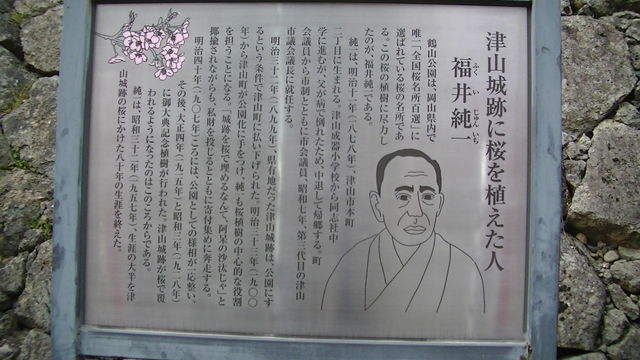 津山城跡に桜を植えた人
福井純一
ふくいじゅんいち
鶴山公園は、岡山県内で
唯一「全国桜名所百選」に
選ばれている桜の名所であ
る。この桜の植樹に尽力し
たのが、福井純一である。
純一は、明治十一(一八七八)年、津山市本町
二丁目に生まれる。津山成器小学校から同志社中
学に進むが、父が病で倒れたため、中退して帰郷する。町
会議員から市制とともに市会議員、昭和七年、第三代目の津山
市議会議長に就任する。
明治三十二年(一八九九)年、県有地だった津山城跡は、公園にす
るという条件で津山町に払い下げられた。明治三十三年(一九〇〇
年)から津山町が公園化に手をつけ、純一も桜植樹の中心的な役割
を担うことになる。「城跡を桜で埋めるなんて、阿呆の沙汰じゃ」と
揶揄されながらも、私財を投じるとともに寄付集めに奔走する。
明治四十年(一九〇七年)ごろには、公園としての様相が一応整い、
その後、大正四年(一九一五年)と昭和三年(一九二八年)
に御大典記念植樹が行われた。津山城跡が桜で覆
われるようになったのはこのころからである。
純一は、昭和三十二年(一九五七年)、生涯の大半を津
山城跡の桜にかけた八十年の生涯を終えた。